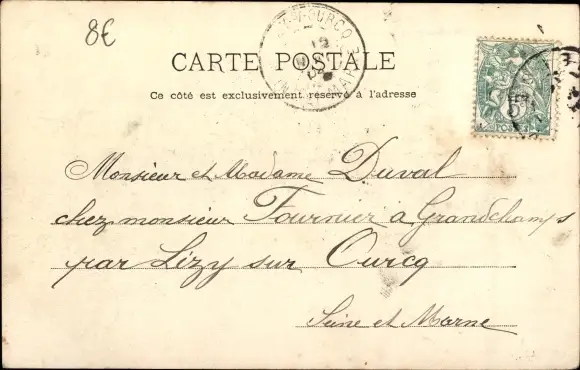 8€
CARTE POSTALE
Ce côté est exclusivement réservé à l'adresse
Monsieur et Madame Duval
chez monsieur Fournier a Grandchamps
par Lizy sur Ourcq
Seine et Marne